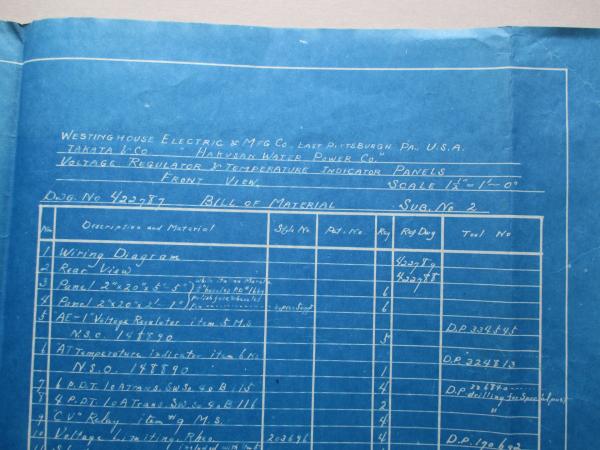 WESTINGHOUSE ELECTRIC & MFG CO. EAST PITTSBURGH PA. U.S.A.
TAKATA & CO. "HAKUSAN WATER POWER CO."
VOLTAGE REGULATOR & TEMPERATURE INDICATOR PANELS
FRONT VIEW. SCALE 1½"=1'-0"
DWG. NO 422787 BILL OF MATERIAL SUB. NO 2
No. Description and Material Style No Pat. No Req Req Dwg Tool No
1 Wiring Diagram 422789
2 Rear View 422788
3 Panel 2"x20"x 5'-5" 6
4 Panel 2"x20"x 2'-1" 6
5 AE-1 Voltage Regulator item 5 M.S. D.P. 224545
N.S.O. 148890 5
6 AT Temperature indicator item 6 M.S. D.P. 224813
N.S.O. 148890 1
7 6 P.D.T. 10 A Trans. Sw. So. 40 B 115 4 D.P. drilling for
8 4 P.D.T. 10 A Trans. Sw. So. 40 B 116 2 "
9 "CV" Relay item #9 M.S. 4
10 Voltage Limiting Rheo. 203696 4 D.P. 190692
11 included with